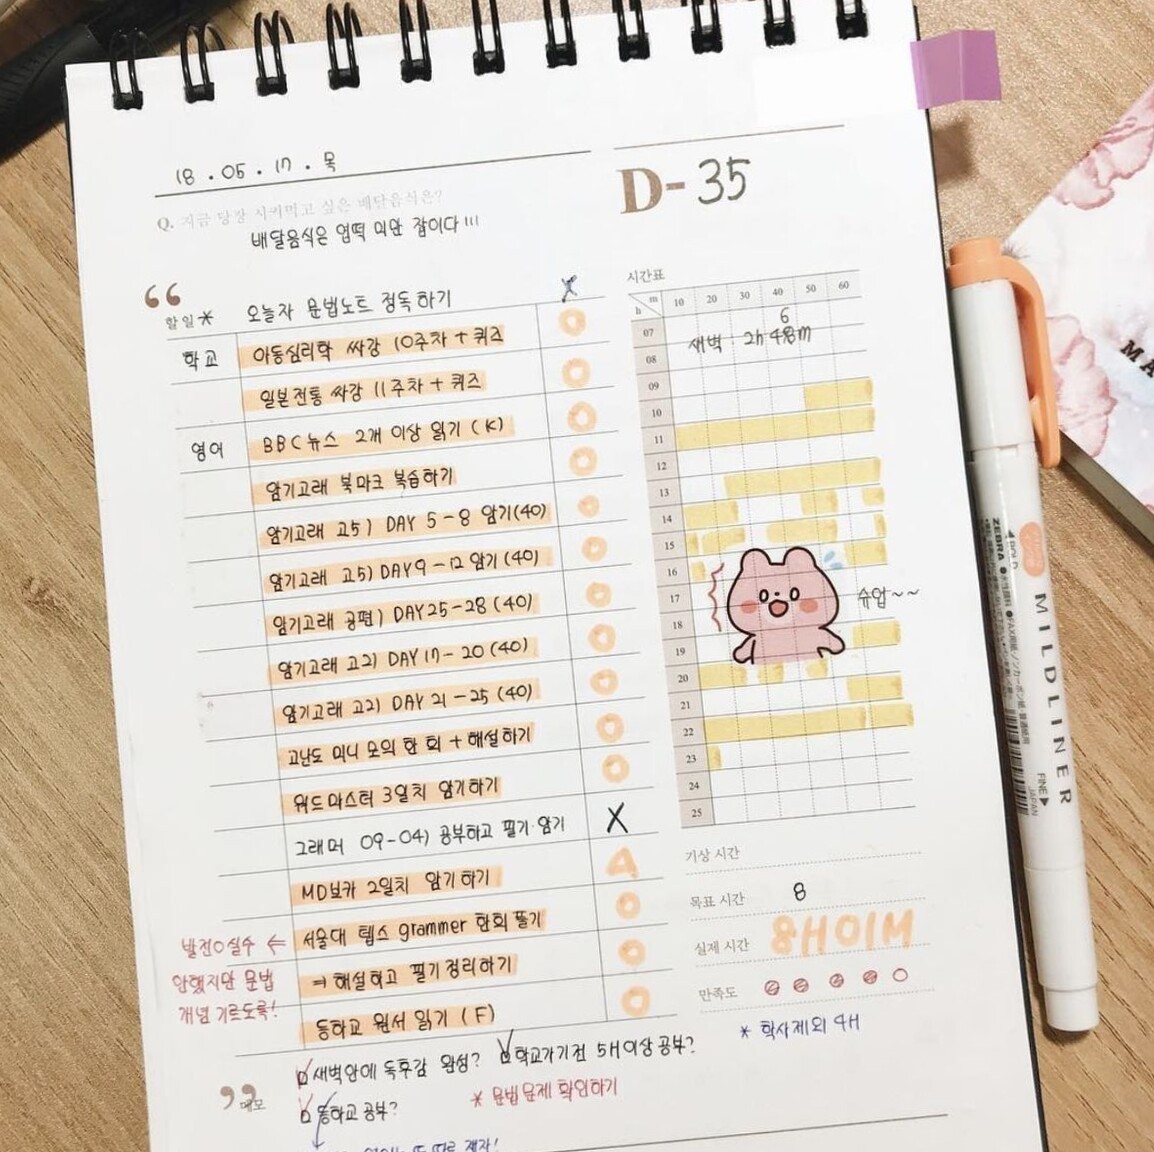 18.05.17.목
D-35
Q. 지금 당장 시켜먹고 싶은 배달음식은?
배달음식은 엽떡 미만 잡이다!!!
할일* 오늘자 문법노트 정독하기 X
학교 아동심리학 싸강 10주차 + 퀴즈
일본전통 싸강 11주차 + 퀴즈
영어 BBC뉴스 2개 이상 읽기 (K)
암기고래 북마크 복습하기
암기고래 고5) DAY 5-8 암기(40)
암기고래 고5) DAY 9-12 암기(40)
암기고래 공편) DAY 25-28 (40)
암기고래 고2) DAY 17-20 (40)
암기고래 고2) DAY 21-25 (40)
고난도 미니 모의 한 회 + 해설하기
워드마스터 3일치 암기하기
그래머 09-04) 공부하고 필기 암기 X
MD보카 2일치 암기하기 △
서울대 텝스 grammer 한회 풀기
⇒ 해설하고 필기 정리하기
등하교 원서 읽기 (F)
발전0 실수 ←
안했지만 문법
개념 기르도록!
메모
새벽안에 독후감 완성? 학교가기전 5H이상 공부?
등하교 공부? * 문법문제 확인하기
시간표
m 10 20 30 40 50 60
h
07
08
09
10
11
12
13
14
15
16
17
18
19
20
21
22
23
24
25
6
새벽 : 2h 48m
슈업~~
기상 시간
목표 시간 8
실제 시간 8H01M
만족도
* 학사제외 4H
ZEBRA
MILDLINER
FINE▶
JAPAN
MA